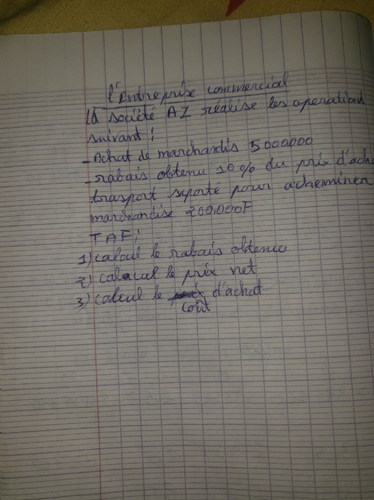 l'Entreprise commercial
la société AZ réalise les operations
suivant :
- Achat de marchandis 5000000
- rabais obtenu 10% du prix d'ach
trasport suporté pour acheminer
marchandise 200.000F
TAF :
1) calcul le rabais obtenu
2) calacul le prix net
3) calcul le coût d'achat